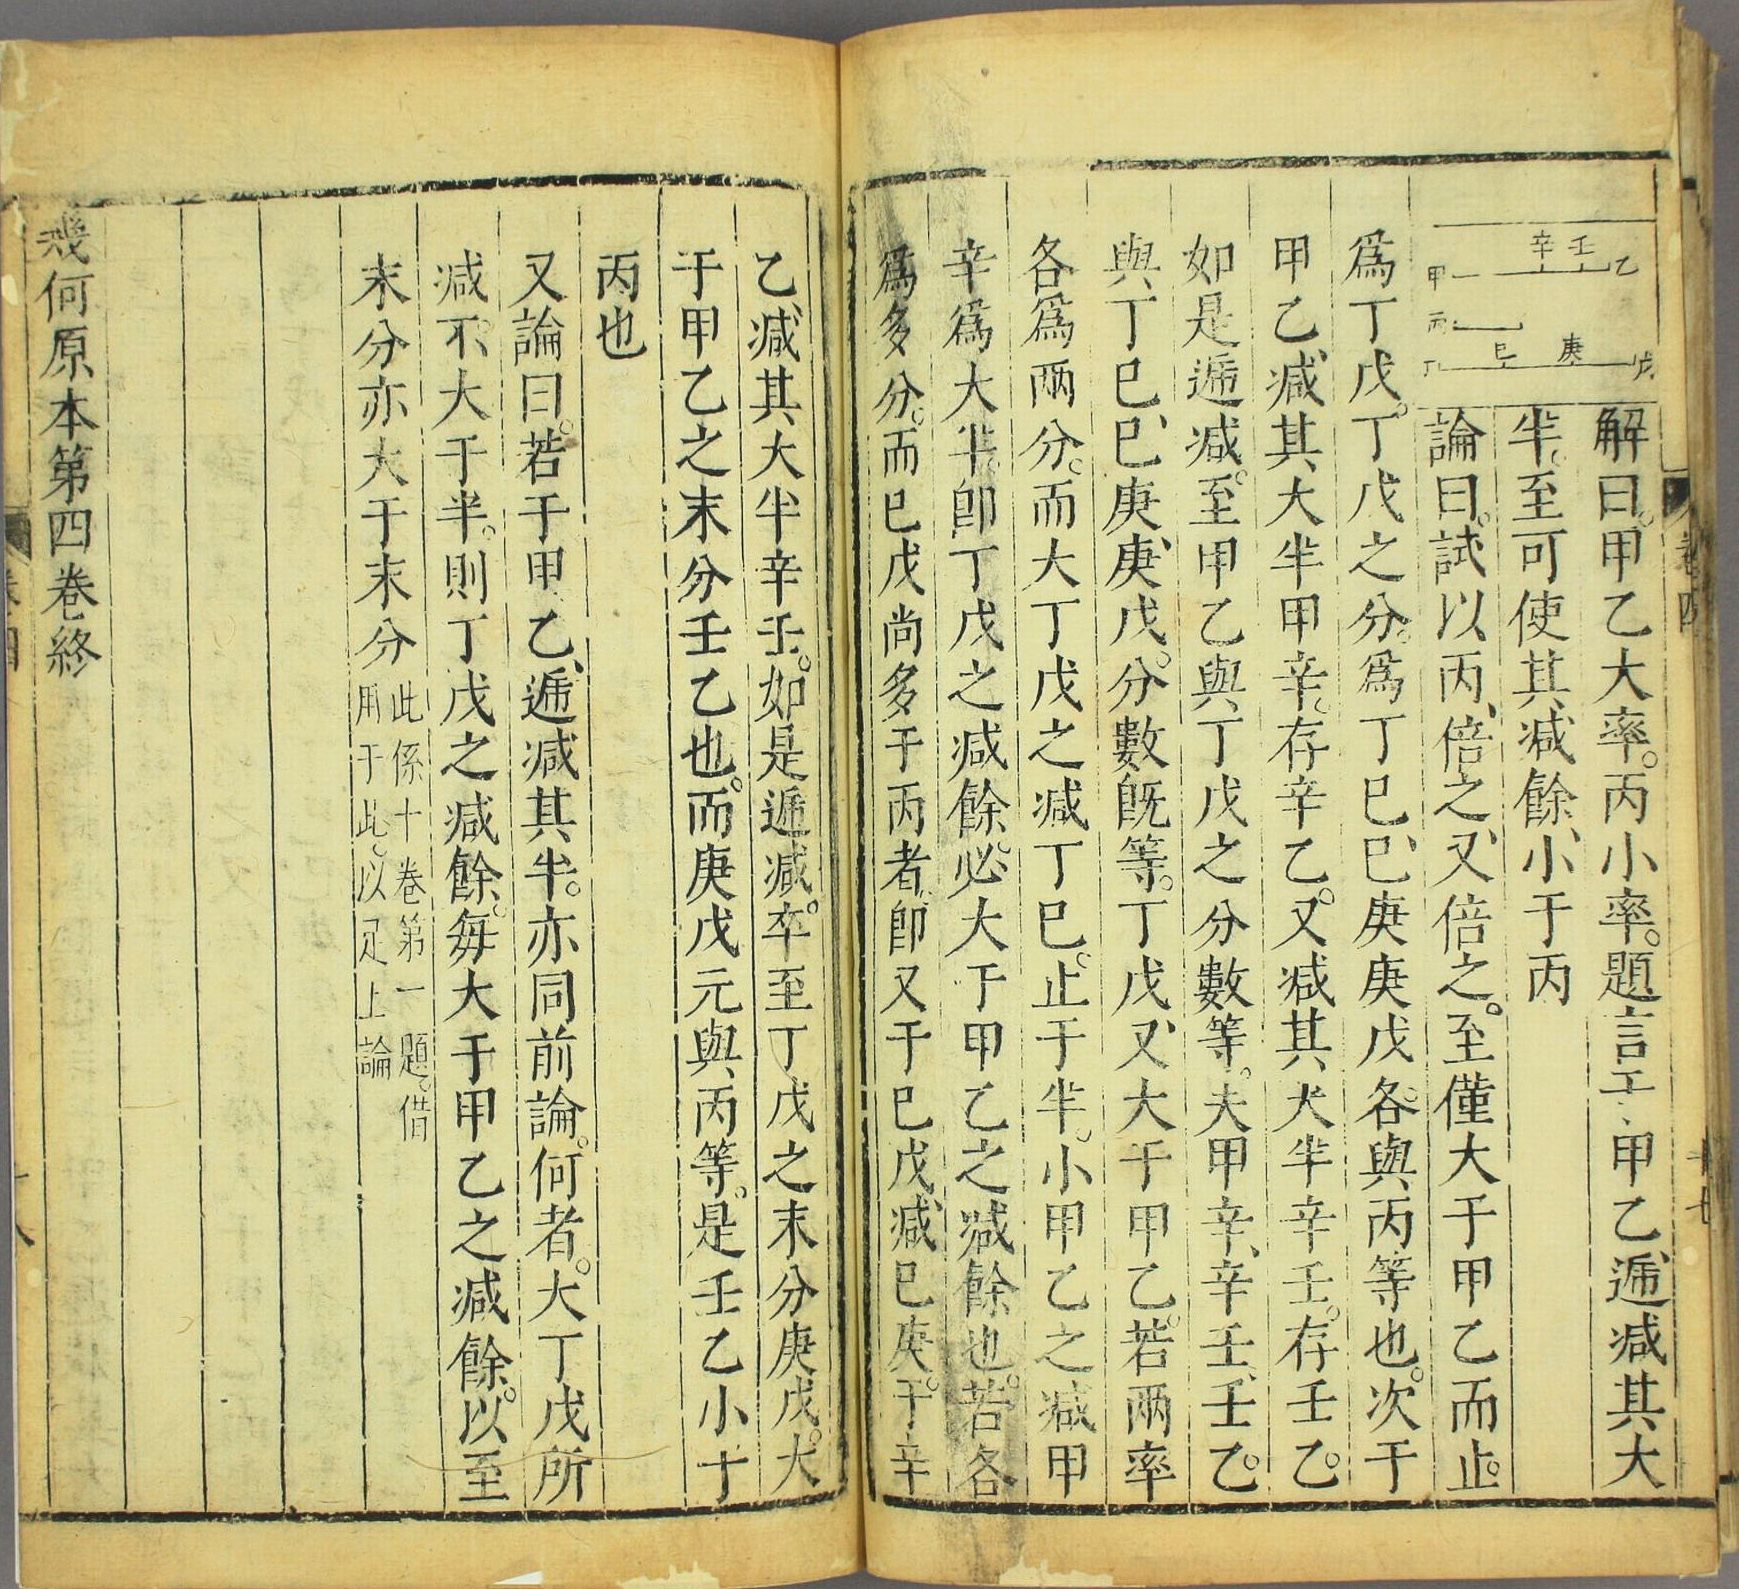 解曰。甲乙大率。丙小率。題言于甲乙、遞減其大
半。至可使其減餘、小于丙
論曰。試以丙、倍之、又倍之。至僅大于甲乙而止。
爲丁戊。丁戊之分。爲丁巳、巳庚庚戊。各與丙等也。次于
甲乙、減其大半甲辛。存辛乙。又減其大半辛壬。存壬乙。
如是遞減。至甲乙與丁戊之分數等。夫甲辛、辛壬、壬乙。
與丁巳、巳庚、庚戊。分數旣等。丁戊又大于甲乙。若兩率
各爲兩分。而大丁戊之減丁巳。止于半。小甲乙之減甲
辛爲大半。卽丁戊之減餘。必大于甲乙之減餘也。若各
爲多分。而巳戊尚多于丙者。卽又于巳戊、減巳庚。于辛
乙、減其大半辛壬。如是遞減。卒至丁戊之末分庚戊。大
于甲乙之末分壬乙也。而庚戊元與丙等。是壬乙小于
丙也
又論曰。若于甲乙、遞減其半。亦同前論。何者。大丁戊所
減、不大于半。則丁戊之減餘。每大于甲乙之減餘。以至
末分亦大于末分
此係十卷第一題。借
用于此。以足上論
幾何原本第四卷終
甲 辛 壬 乙
丙
丁 巳 庚 戊
卷四
十七